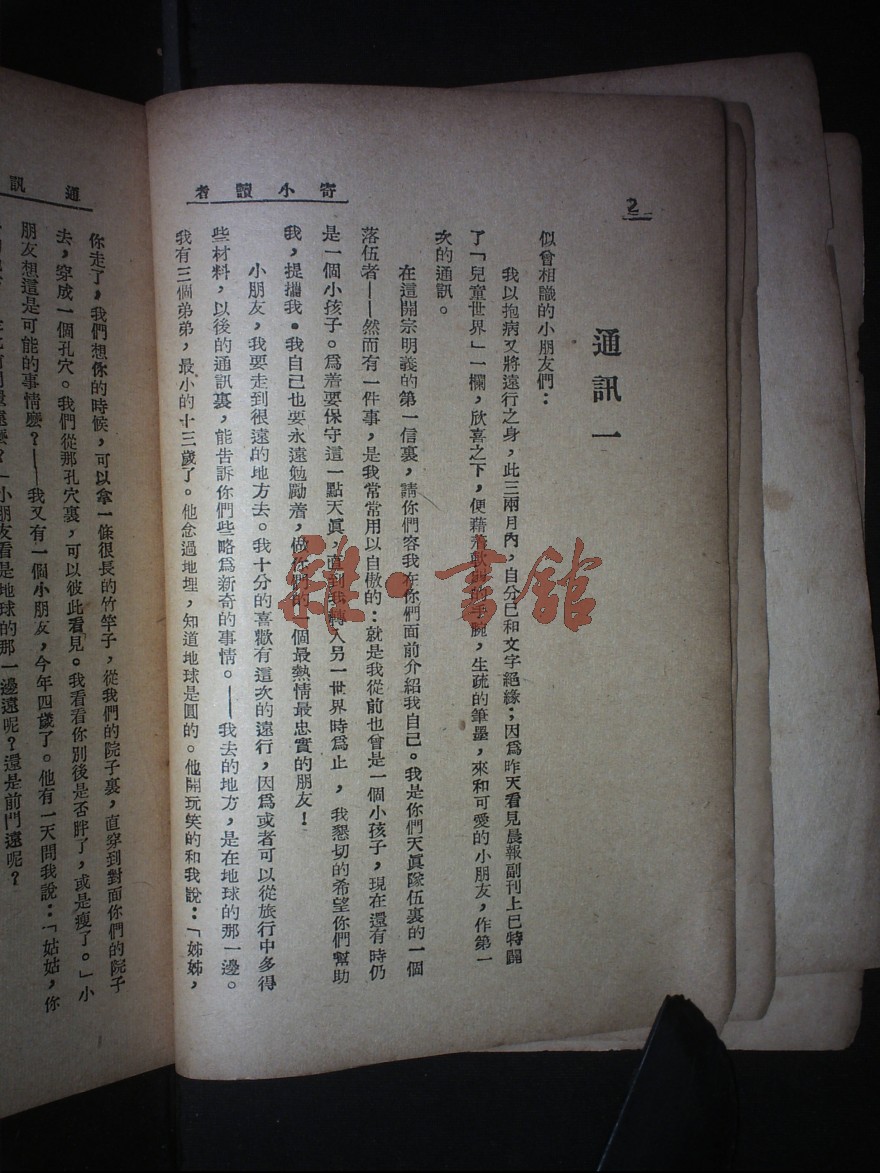 2
寄小讀者
通訊一
似曾相識的小朋友們：
我以抱病又將遠行之身，此三兩月內，自分已和文字絕緣；因爲昨天看見晨報副刊上已特闢
了「兒童世界」一欄，欣喜之下，便藉着軟弱的手腕，生疏的筆墨，來和可愛的小朋友，作第一
次的通訊。
在這開宗明義的第一信裏，請你們容我在你們面前介紹我自己。我是你們天眞隊伍裏的一個
落伍者——然而有一件事，是我常常用以自傲的：就是我從前也曾是一個小孩子，現在還有時仍
是一個小孩子。爲着要保守這一點天眞，直到我轉入另一世界時爲止，我懇切的希望你們幫助
我，提攜我。我自己也要永遠勉勵着，做你們的一個最熱情最忠實的朋友！
小朋友，我要走到很遠的地方去。我十分的喜歡有這次的遠行，因爲或者可以從旅行中多得
些材料，以後的通訊裏，能告訴你們些略爲新奇的事情。——我去的地方，是在地球的那一邊。
我有三個弟弟，最小的十三歲了。他念過地理，知道地球是圓的。他開玩笑的和我說：「姊姊，
通訊
你走了，我們想你的時候，可以拿一條很長的竹竿子，從我們的院子裏，直穿到對面你們的院子
去，穿成一個孔穴。我們從那孔穴裏，可以彼此看見。我看看你別後是否胖了，或是瘦了。」小
朋友想這是可能的事情麽？——我又有一個小朋友，今年四歲了。他有一天問我說：「姑姑，你
遠麽？」小朋友看是地球的那一邊遠呢？還是前門遠呢？
雜·書館